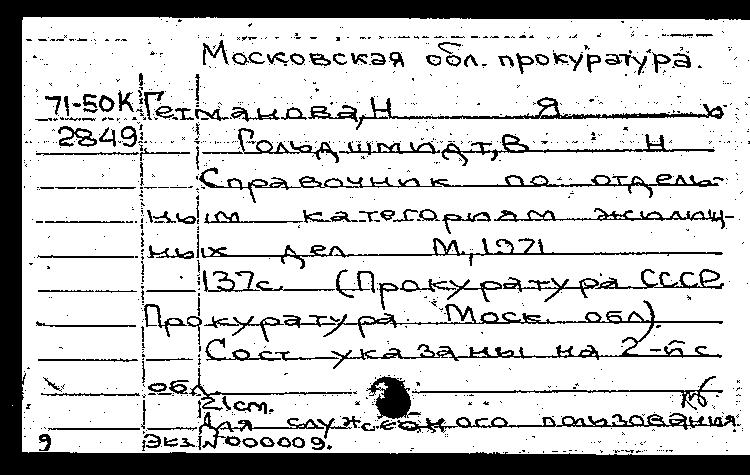 Московская обл. прокуратура.
71-50К Гетманова, Н Я
2849 Гольдшмидт, В Н
Справочник по отдель-
ным категориям жилищ-
ных дел М., 1971
137с. (Прокуратура СССР.
Прокуратура Моск. обл).
Сост. указаны на 2-й с.
обл.
21см.
Для служебного пользования
9 Экз. N000009.